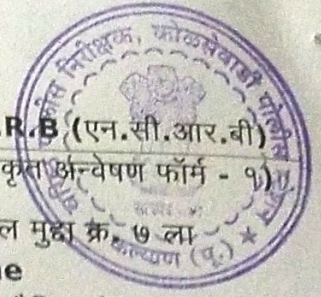 पोलीस निरीक्षक, कोळसेवाडी पोलीस
कल्याण (पू.)
R.B (एन.सी.आर.बी)
कृत अन्वेषण फॉर्म - १)
ल मुद्दा क्र. ७ ला
e